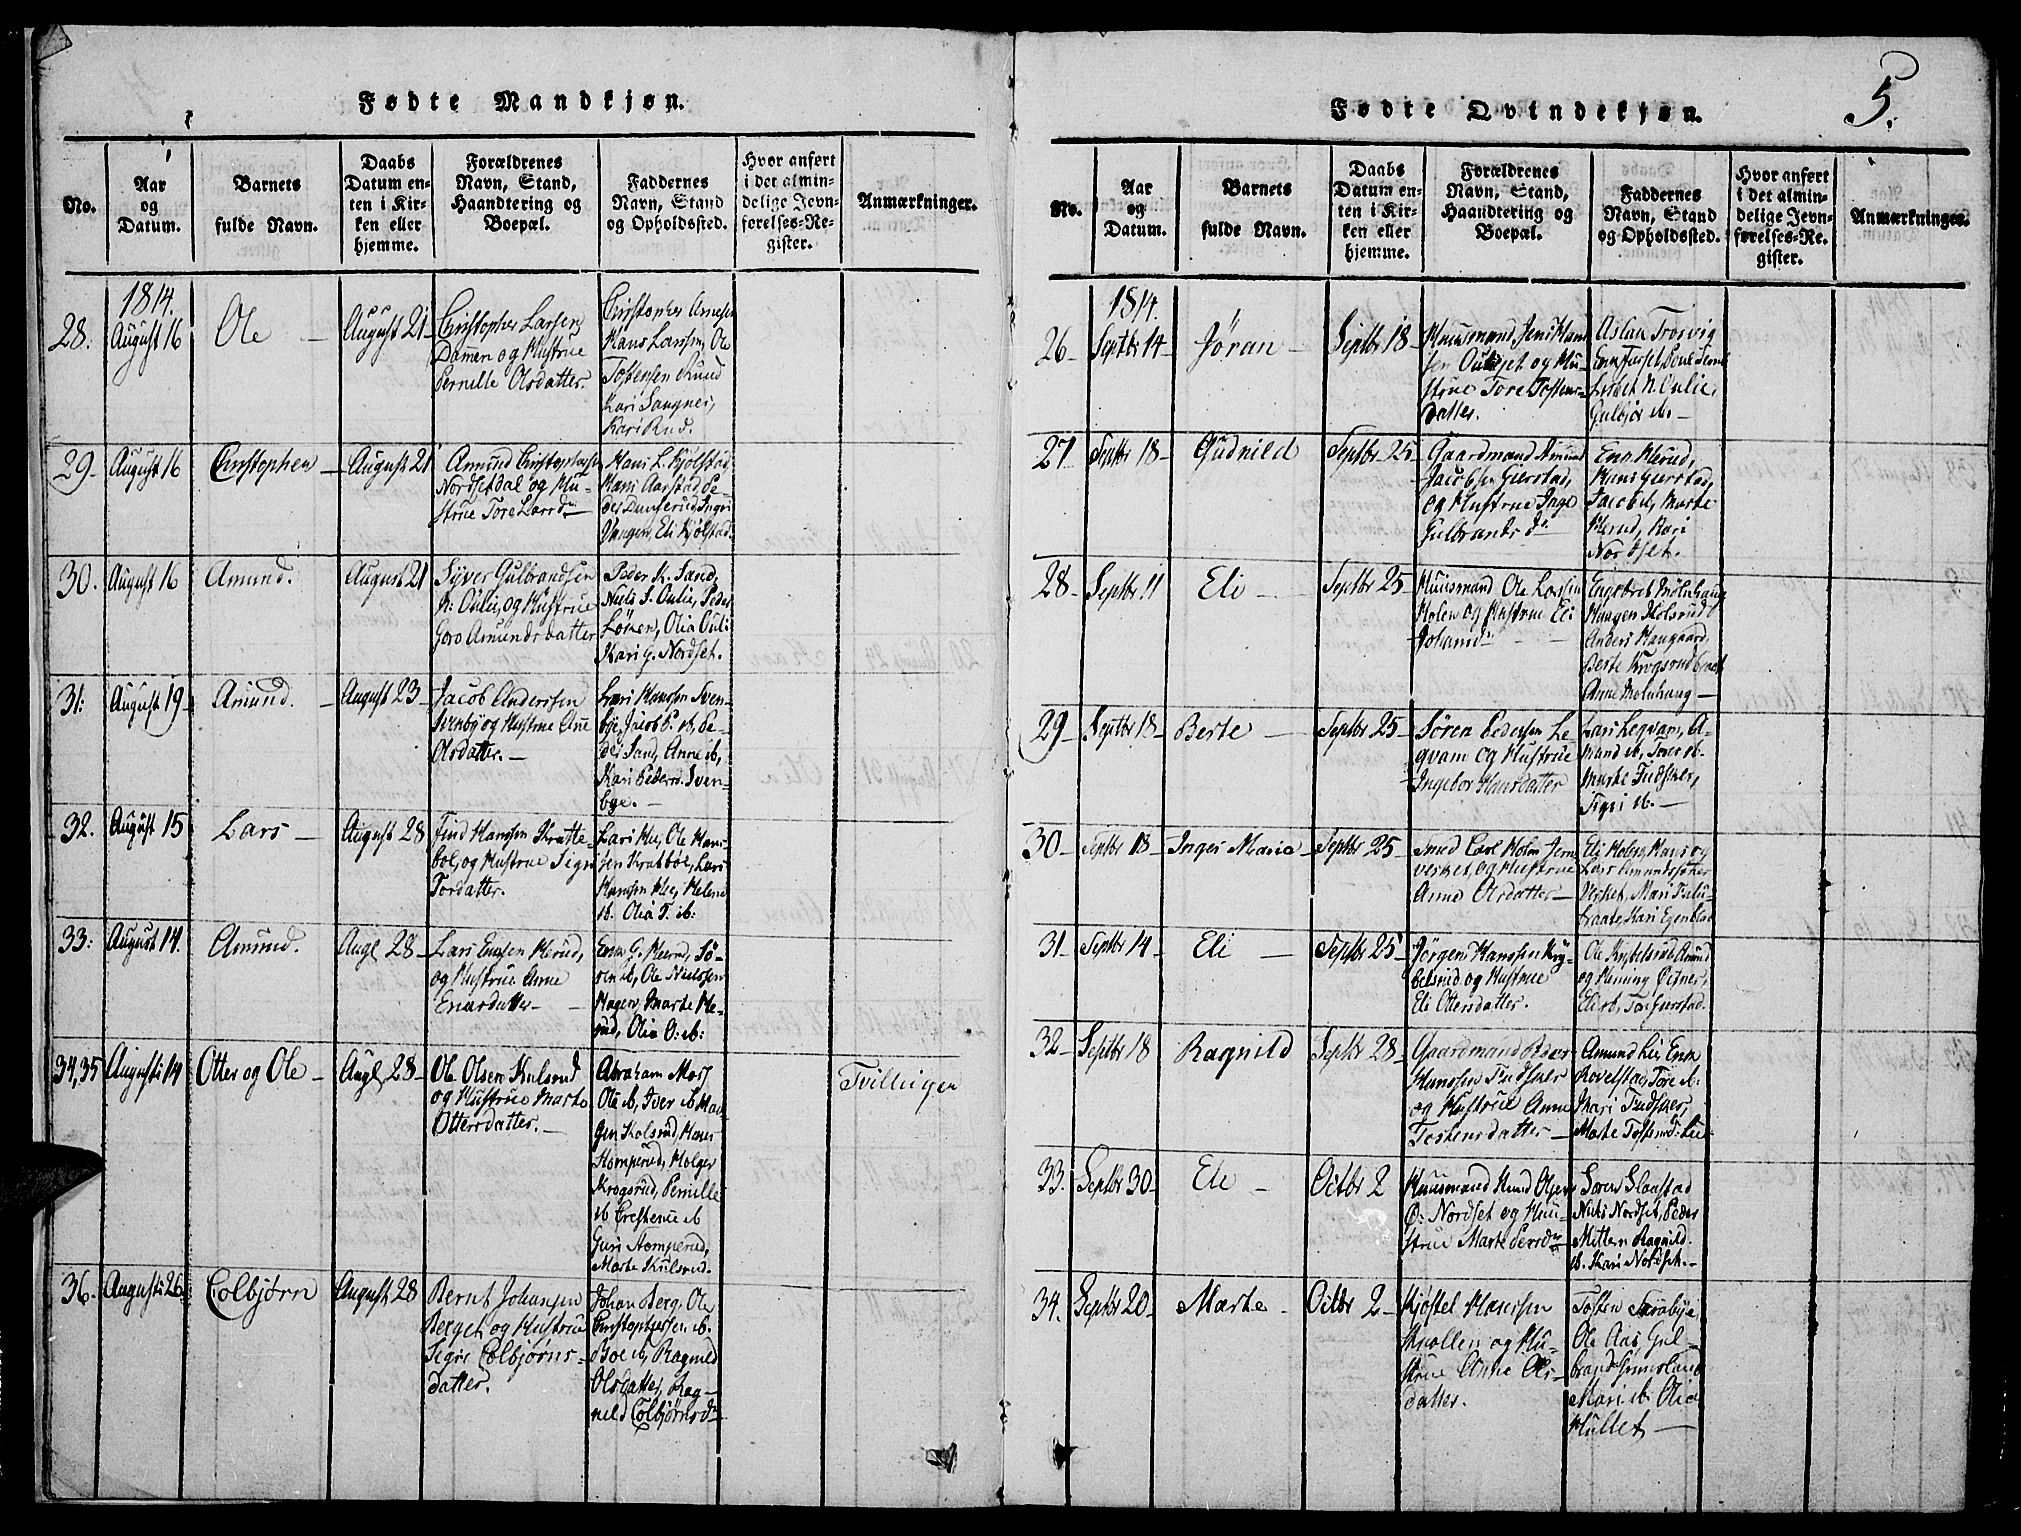 Fødte Mandkjøn.
No.
Aar
og
Datum.
Barnets
fulde Navn.
Daabs
Datum en-
ten i Kir-
ken eller
hjemme.
Forældrenes
Navn, Stand,
Haandtering og
Boepæl.
Faddernes
Navn, Stand
og Opholdssted.
Hvor anført
i det almin-
delige Jevn-
førelses-Re-
gister.
Anmærkninger.
1814.
28.
August 16
Ole
August 21
Christopher Larsen
Damen og Hustrue
Pernille Olsdatter.
Christopher
Hans Larssen, Ole
Tostensen Ruud
Kari Sangnes,
Kari Rud.
29
August 16
Christopher
August 21
Amund Christophersen
Nordsetdal og Hu-
strue Tore Larsd
Hans L. Kjølstad
Hans Aarstad Pe-
der Dunserud Ingri
Vangen, Eli Kjølstad.
30.
August 16
Amund.
August 21
Syver Gulbrandsen
n: Oulie, og Hustrue
Goro Amundsdatter
Peder K. Sand,
Niels S. Oulie, Peder
Løken, Olia Ouli
Kari g. Nordset.
31:
August 19
Amund.
August 23
Jacob Anderssen
Svenby og Hustrue Ane
Olsdatter.
Lars Hanssen Sven-
bye, Jacob P. ib, Pe-
der Sand, Anne ib,
Kari Pedersd. Sven-
bye.
32.
August 15
Lars
August 28
Find Hanssen Kratte-
bøl, og Hustrue Sign
Tordatter.
Lars Hie, Ole Hans-
sen Kratbøl, Lars
Hanssen Hie, Helene
ib. Olia T. ib:
33:
August 14
Amund.
Aug 28
Lars Ensen Herud,
og Hustrue Anne
Enersdatter
Ener G. Herud, Sø-
ren ib, Ole Nielssen
Hagen, Marte He-
rud, Olia O. ib:
34,35
August 14
Otter og Ole
Aug 28
Ole Olsen Kulsrud
og Hustrue Marte
Ottersdatter.
Abraham Mors
Ole ib, Iver ib Haa-
gen Kolsrud, Hans
Homperud, Holger
Krogsrud, Pernille
ib Crestence ib
Guri Homperud,
Marte Kulsrud.
Tvillinger
36.
August 26
Colbjørn
August 28
Bernt Johansen
Berget og Hustrue
Sigri Colbjørns-
datter.
Johan Berg, Ole
Christophersen ib.
Boe ib, Ragnild
Olsdatter, Rag-
nild Colbjørnsd
5.
Fødte Qvindekjøn.
No.
Aar
og
Datum.
Barnets
fulde Navn.
Daabs
Datum en-
ten i Kir-
ken eller
hjemme.
Forældrenes
Navn, Stand,
Haandtering og
Boepæl.
Faddernes
Navn, Stand
og Opholdssted.
Hvor anført
i det almin-
delige Jevn-
førelses-Re-
gister.
Anmærkninger.
1814.
26
Septbr 14
Jøran
Septbr 18
Huusmand Jens Han-
sen Oulset og Hu-
strue Tore Tostens-
datter.
Aslak Trosvig
Lisbet N. Oulie,
Gulbjør ib.
27
Septbr 18
Gudnild
Septbr 25
Gaardmand Amund
Jacobsen Gierstad,
og Hustrue Inge
Gulbrandsd:
Ener Herud,
Hans Gierstad,
Jacob ib, Marte
Herud, Kari
Nordset.
28
Septbr 11
Eli
Septbr 25
Huusmand Ole Larsen
Molen og Hustrue Eli
Johansd
Engebret Molnhaug
Haagen Holsrud
Anders Haugaard,
Berte Krogsrud
Anne Molnhaug
29
Septbr 18
Berte
Septbr 25
Søren Pedersen Le-
qvam og Hustrue
Ingebor Hansdatter
Lars Leqvam, A-
mund ib, Tore ib.
Marte Fudsker,
Sigri ib.
30
Septbr 18
Inger Maria
Septbr 25
Smed Carl Holm Jern-
verket, og Hustrue
Anne Olsdatter
Eli Holm, Hans og
Lars Amundssøner
Verket, Mari
Kari Egenblad
31
Septbr 14
Eli
Septbr 25
Jørgen Hanssen Kry-
belsrud og Hustrue
Eli Ottersdatter.
Ole Krybelsrud, Amund
og Henning Østner,
Eli ib,
32
Septbr 18
Ragnild
Septbr 28
Gaardmand Peder
Hanssen Fudsker
og Hustrue Anne
Tostensdatter
Amund Lie, Ener
Rovelstad, Tore ib.
Mari Fudsker,
Marte Tostensd. Lie
33.
Septbr 30
Eli
Octbr 2
Huusmand Knud Olsen
O: Nordset og Huu-
strue Marte Persd
Søren Slaastad
Niels Nordset, Peder
Mittem Ragnild
ib. Kari Nordset.
34.
Septbr 20
Marte
Octbr 2
Kjøstel Hanssen
Knollen og Hu-
strue Anne Ols-
datter.
Tosten Taraabye
Ole Aas, Gul-
brand Grimsland
Mari ib Olia
Hullet